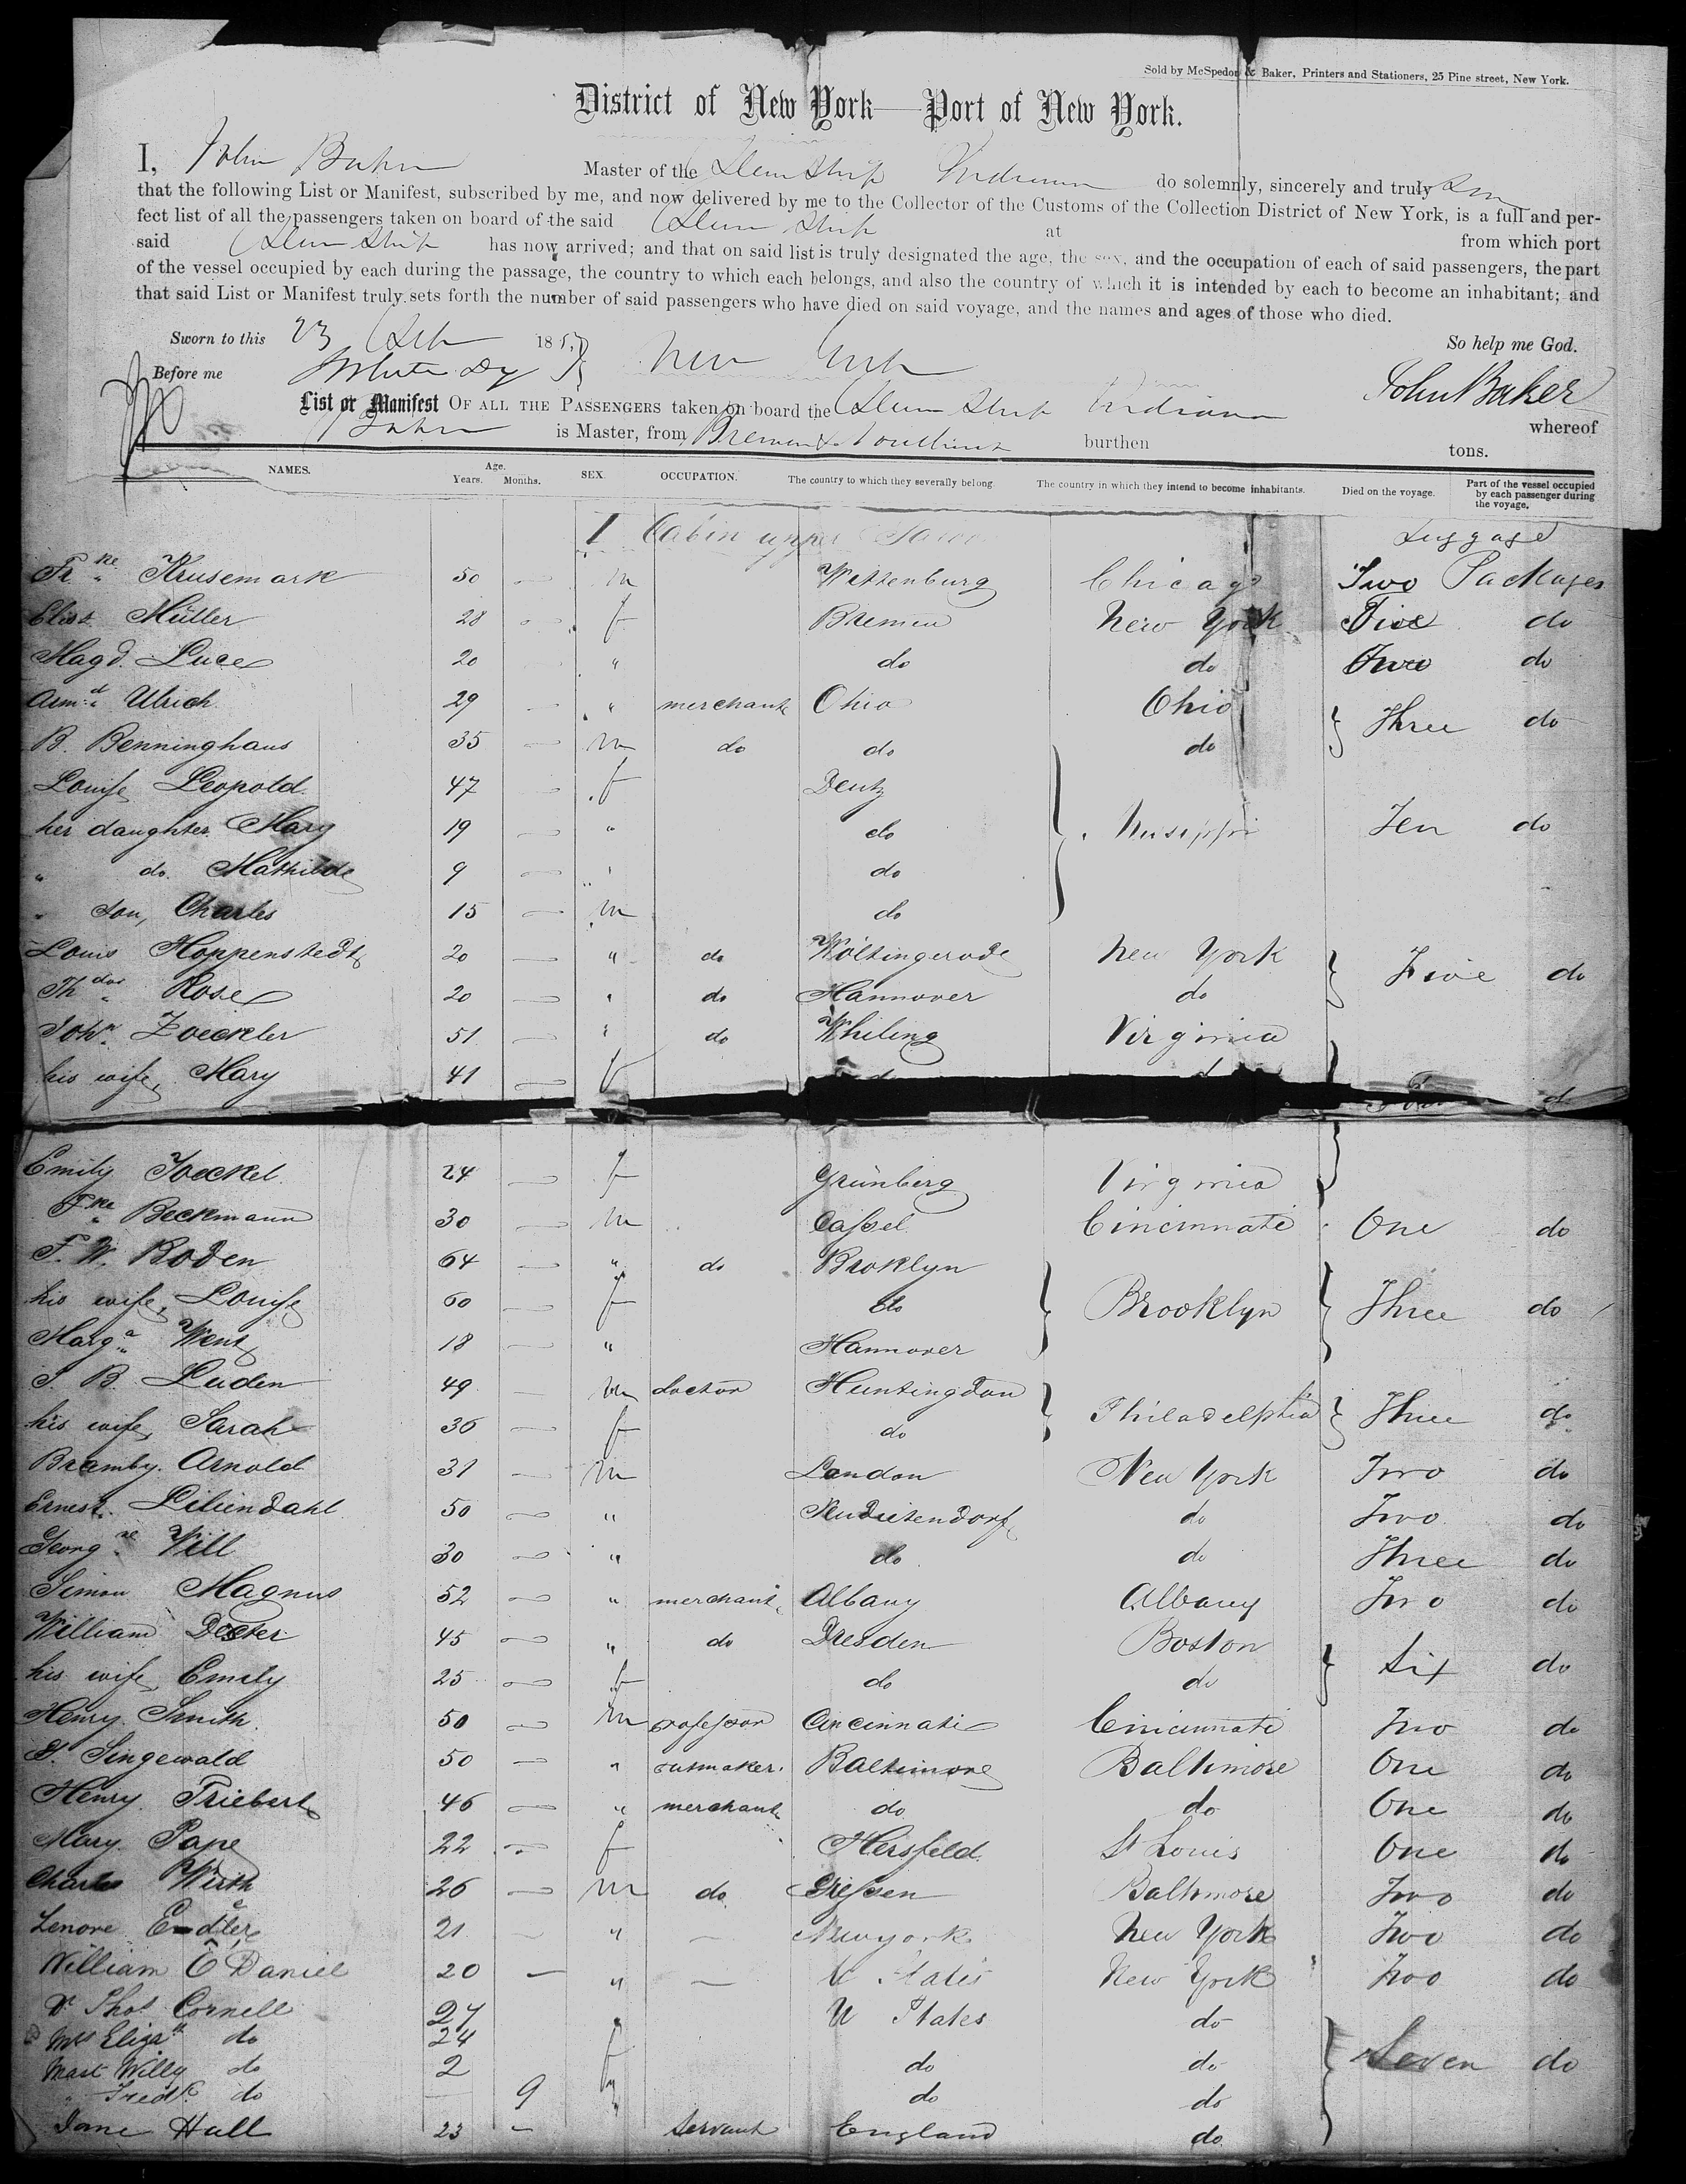 Sold by McSpedon & Baker, Printers and Stationers, 25 Pine street, New York.
District of New York—Port of New York.
I, John Baker Master of the Steam Ship Indiana do solemnly, sincerely and truly
that the following List or Manifest, subscribed by me, and now delivered by me to the Collector of the Customs of the Collection District of New York, is a full and per-
fect list of all the passengers taken on board of the said Steam Ship at from which port
said Steam Ship has now arrived; and that on said list is truly designated the age, the sex, and the occupation of each of said passengers, the part
of the vessel occupied by each during the passage, the country to which each belongs, and also the country of which it is intended by each to become an inhabitant; and
that said List or Manifest truly sets forth the number of said passengers who have died on said voyage, and the names and ages of those who died.
Sworn to this 23 185 So help me God.
Before me New York John Baker
List or Manifest OF ALL THE PASSENGERS taken on board the Steam Ship Indiana whereof
Baker is Master, from Bremen & burthen tons.
NAMES. Age. Years. Months. SEX. OCCUPATION. The country to which they severally belong. The country in which they intend to become inhabitants. Died on the voyage. Part of the vessel occupied by each passenger during the voyage.
I Cabin upper Luggage
Fr ke Krusemark 50 — m Wittenburg Chicago Two Packages
Elis Müller 28 f Bremen New York Five do
Magd. Luce 20 " do do Two do
Arm d Ulrich 29 — " merchant Ohio Ohio } Three do
B. Benninghaus 35 — m do do do
Louise Leopold 47 f Deutz
her daughter Mary 19 — " do } Ten do
" do. Mathilde 9 — " do
" Son, Charles 15 — m do
Louis Hoppenstedt 20 — " do Wöltingerode New York } Five do
Th dor Rose 20 — " do Hannover do
Joh n Zoeckler 51 — " do Whiling Virginia
his wife, Mary 41 — f
Emily Joeckel 24 — f Grünberg Virginia
F ke Beckmann 30 — m Cassel Cincinnati One do
F. W. Boden 64 — " do Broklyn
his wife, Louise 60 — f do } Brooklyn } Three do
Marg a Went 18 — " Hannover
J. B. Luden 49 — m doctor Huntingdon } Philadelphia } Three do
his wife, Sarah 36 — f do
Bramby. Arnold 31 — m London New York Two do
Ernest. Liliendahl 50 — " Neudietendorf do Two do
Georg Will 30 — " do do Three do
Simon Magnus 52 — " merchant Albany Albany Two do
William Dexter 45 — " do Dresden Boston } Six do
his wife, Emely 25 — f do do
Henry. Smith 50 — m professor Cincinnati Cincinnati Two do
Singewald 50 — " Baltimore Baltimore One do
Henry. Friebert 46 — " merchant do do One do
Mary. Pape 22 — f Hersfeld St Louis One do
Charles Wirth 26 — m do Giessen Baltimore Two do
Lenore 21 — " — New york New York Two do
William O Daniel 20 — " — U States New York Two do
Dr Thos Cornell 27 U States do
Mrs Eliza th do 24 f } Seven do
Mast Willy do 2 do do
" Fred k do 9 do do
Jane Hall 23 — Servant England do